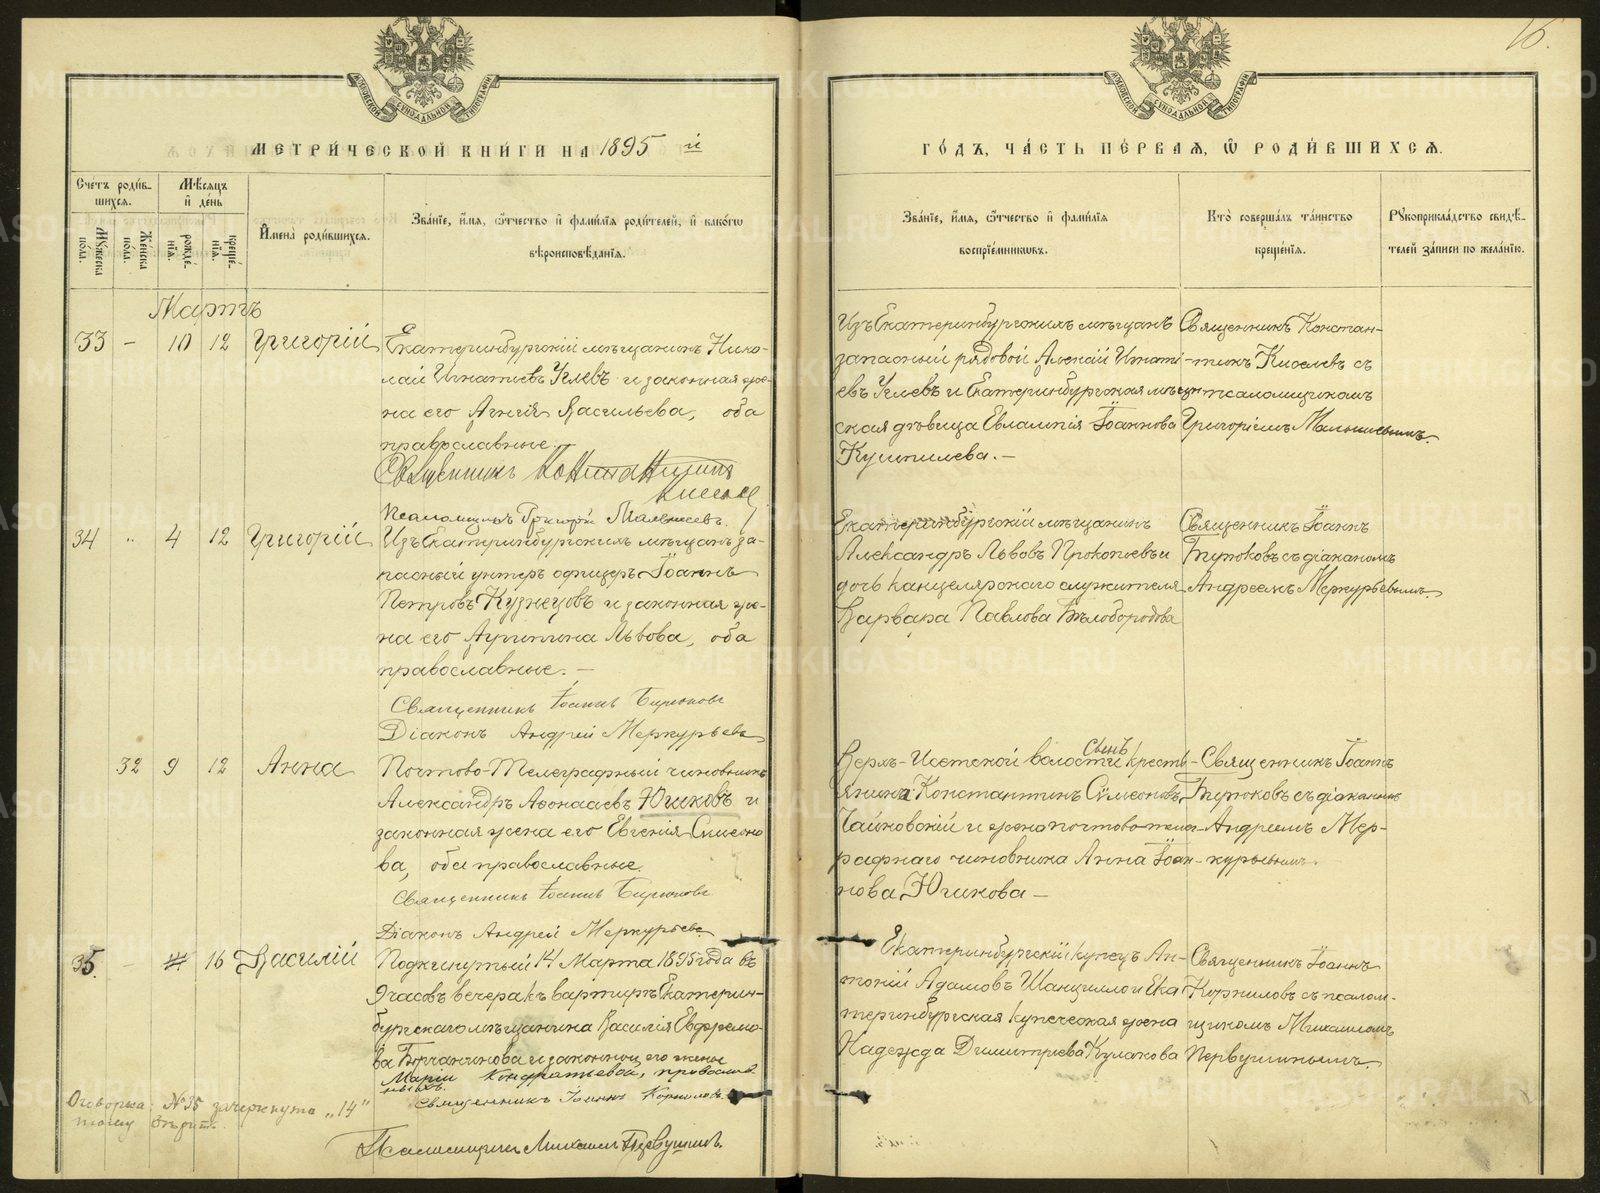 16.
МЕТРИЧЕСКОЙ КНИГИ НА 1895 й
ГОДЪ, ЧАСТЬ ПЕРВАЯ, Ѡ РОДИВШИХСЯ.
Счетъ родив-
шихся.
Мужеска пола.
Женска пола.
Мѣсяцъ
и день
рожденія.
крещенія.
Имена родившихся.
Званіе, имя, отчество и фамилія родителей, и какогѡ
вѣроисповѣданія.
Званіе, имя, отчество и фамилія
воспріемниковъ.
Кто совершалъ таинство
крещенія.
Рукоприкладство свидѣ-
телей записи по желанію.
Мартъ
33 – 10 12 Григорій
Екатеринбургскій мѣщанинъ Нико-
лай Игнатіевъ Углевъ и законная же-
на его Агнія Васильева, оба
православные.
Священникъ Константинъ
Киселев
Псаломщикъ Григорій Малышевъ.
Изъ Екатеринбургскихъ мѣщанъ
запасный рядовой Алексій Игнаті-
евъ Углевъ и Екатеринбургская мѣщан
ская дѣвица Евлампія Іоаннова
Кушпилева. –
Священникъ Констан-
тинъ Киселевъ съ
псаломщикомъ
Григоріемъ Малышевымъ.
34 " 4 12 Григорій
Изъ Екатеринбургскихъ мѣщанъ за-
пасный унтеръ офицеръ Іоаннъ
Петровъ Кузнецовъ и законная же-
на его Агрипина Львова, оба
православные. –
Священникъ Іоаннъ Бирюковъ
Діаконъ Андрей Меркурьевъ
Екатеринбургскій мѣщанинъ
Александръ Львовъ Прокопьевъ и
дочь канцелярскаго служителя
Варвара Павлова Бѣлобородова
Священникъ Іоаннъ
Бирюковъ съ діакономъ
Андреемъ Меркурьевымъ.
32 9 12 Анна
Почтово-Телеграфный чиновникъ
Александръ Аѳонасіевъ Югиковъ и
законная жена его Евгенія Симеоно
ва, оба православные
Священникъ Іоаннъ Бирюковъ
Діаконъ Андрей Меркурьевъ
Верхъ-Исетской волости сынъ кресть-
янина Константинъ Сѵмеоновъ
Чайковскій и жена почтово-теле-
графнаго чиновника Анна Іоан-
нова Югикова –
Священникъ Іоаннъ
Бирюковъ съ діакономъ
Андреемъ Мер-
курьевымъ.
35. – 16 Василій
Подкинутый 14 Марта 1895 года въ
9 часовъ вечера къ квартирѣ Екатерин-
бургскаго мѣщанина Василія Евфремо-
ва Борчанинова и законной его жены
Маріи Кондратьевой, православ
ныхъ.
Священникъ Іоаннъ Корниловъ.
Псаломщикъ Михаилъ Первушинъ.
Екатеринбургскій купецъ Ан-
тоній Адамовъ Шанцилло и Ека
теринбургская купеческая жена
Надежда Димитріева Кулакова
Священникъ Іоаннъ
Корниловъ съ псалом-
щикомъ Михаиломъ
Первушинымъ.
Оговорка: №35 зачеркнута „14"
тому вѣрить.